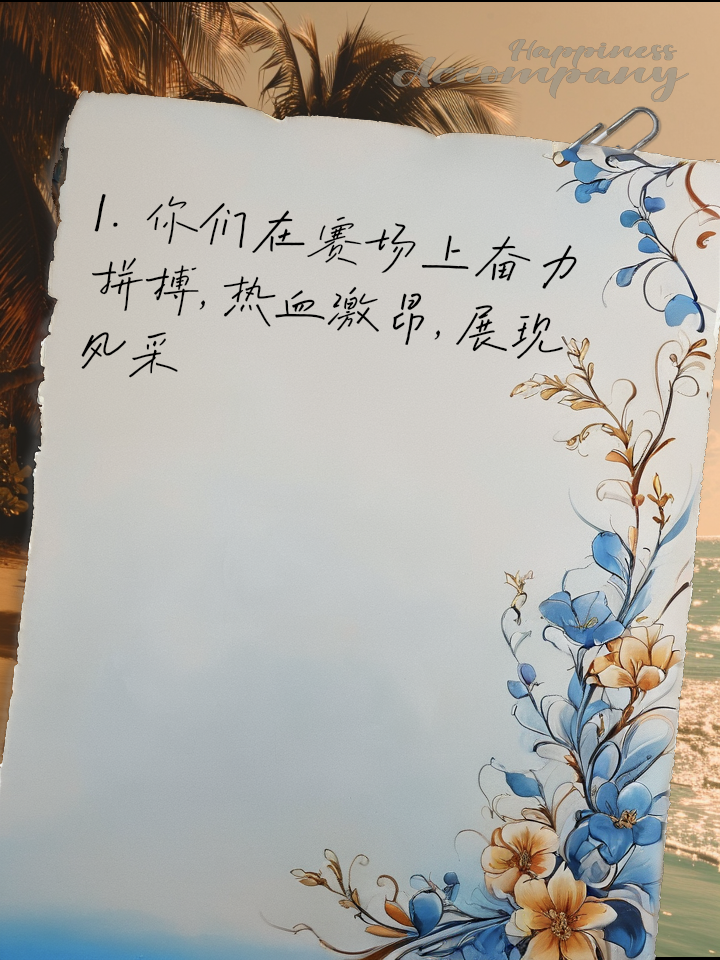 Happiness
Accompany
1. 你们在赛场上奋力
拼搏, 热血激昂, 展现
风采